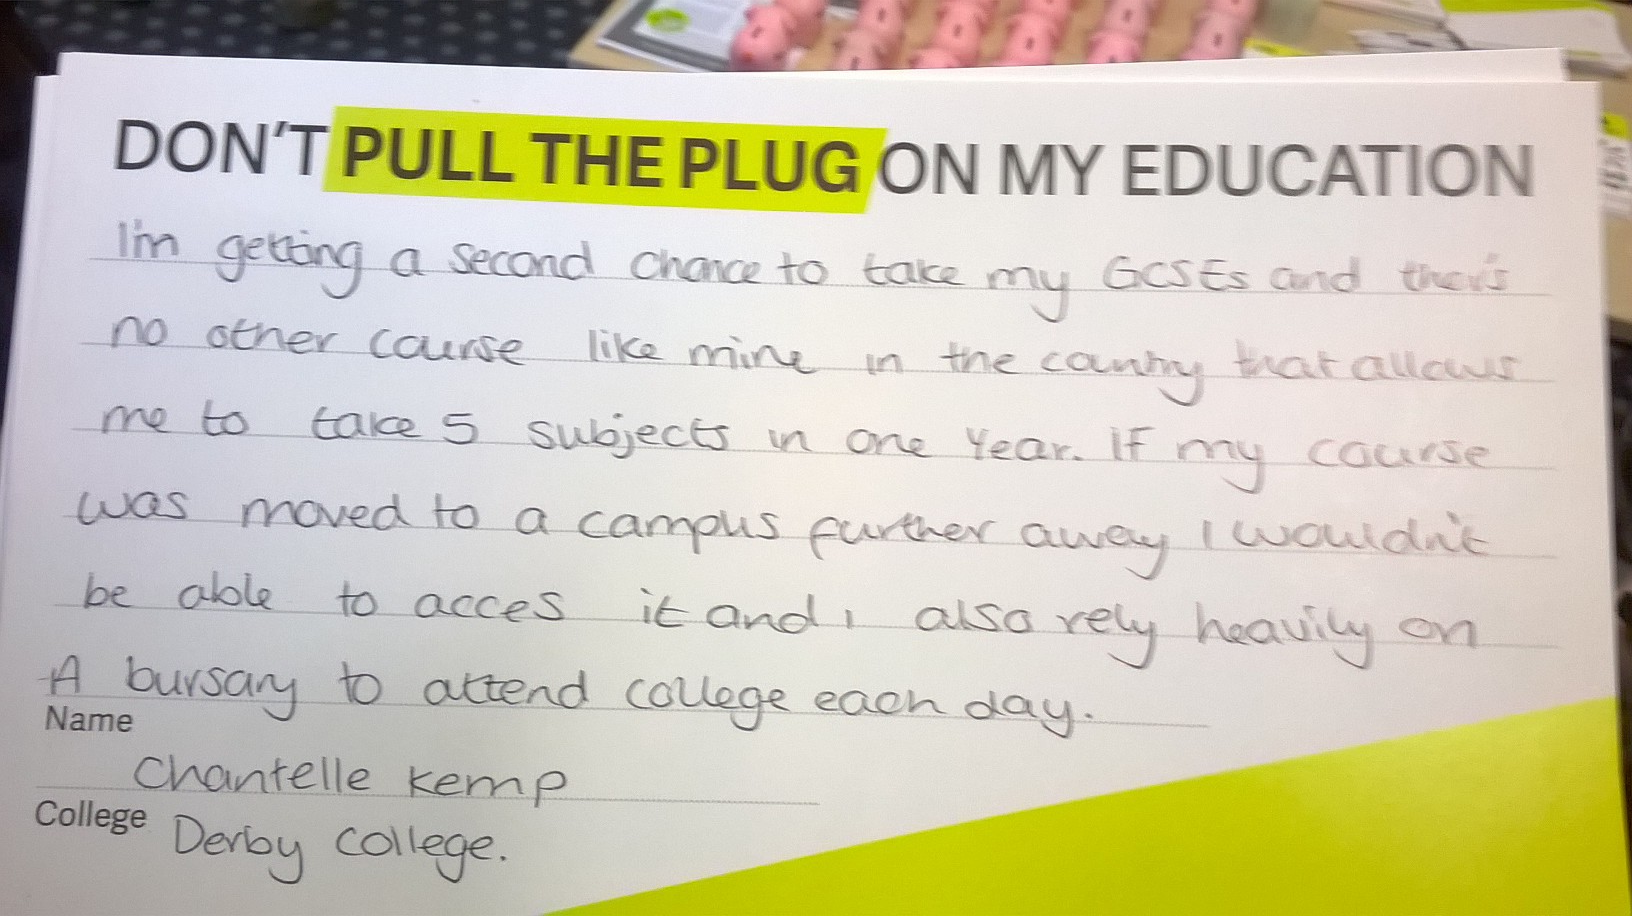 DON'T PULL THE PLUG ON MY EDUCATION
I'm getting a second chance to take my GCSEs and ther's
no other course like mine in the country that allows
me to take 5 subjects in one Year. If my course
was moved to a campus further away I wouldn't
be able to acces it and i also rely heavily on
A bursary to attend college each day.
Name
Chantelle Kemp
College Derby College.